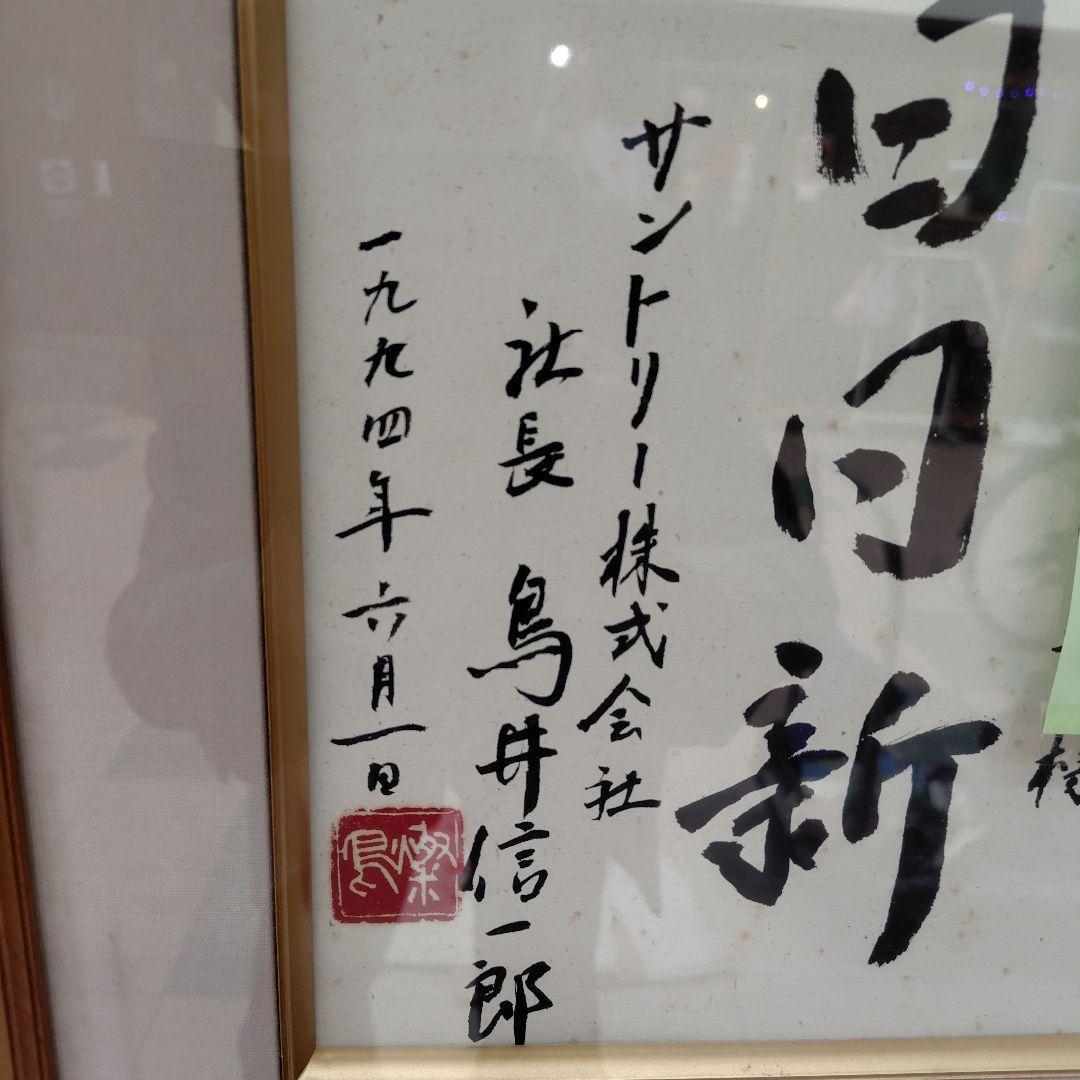 日日新
サントリー株式会社
社長 鳥井信一郎
一九九四年六月一日